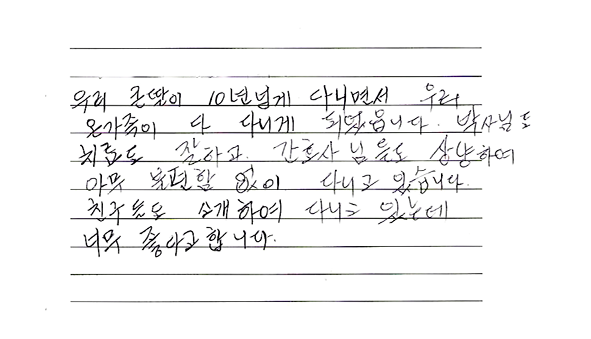 우리 큰딸이 10년넘게 다니면서 우리
온가족이 다 다니게 되었읍니다. 박사님도
치료도 잘하고 간호사님들도 상냥하여
아무 불편함 없이 다니고 있습니다.
친구들도 소개하여 다니고 있는데
너무 좋다고합니다.